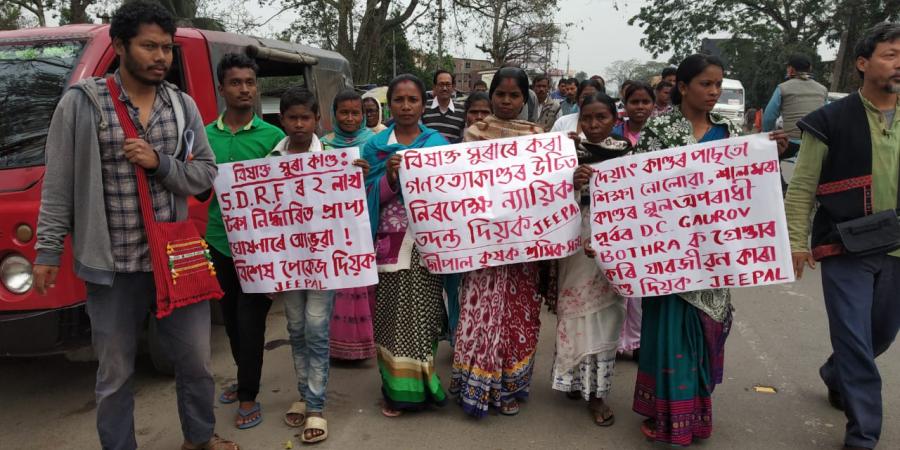 বিষাক্ত সুৰা কাণ্ডঃ
S.D.R.F ৰ ২ লাখ
টকা নিৰ্দ্ধাৰিত প্ৰাপ্য
ঘোষনাৰে ভাঙুৱা !
বিশেষ পেকেজ দিয়ক
JEEPAL
বিষাক্ত সুৰাৰে কৰা
গনহত্যাকাণ্ডৰ উচিত
নিৰপেক্ষ ন্যায়িক
তদন্ত দিয়ক JEEPAL
জীপাল কৃষক শ্ৰমিক সংঘ
দৈয়াং কাণ্ডৰ পাছতে
শিক্ষা নোলোৱা, শালমৰা
কাণ্ডৰ মূল অপৰাধী
পূৰ্বৰ D.C. GAUROV
BOTHRA ক গ্ৰেপ্তাৰ
কৰি যাবজীৱন কাৰা
দণ্ড দিয়ক - JEEPAL